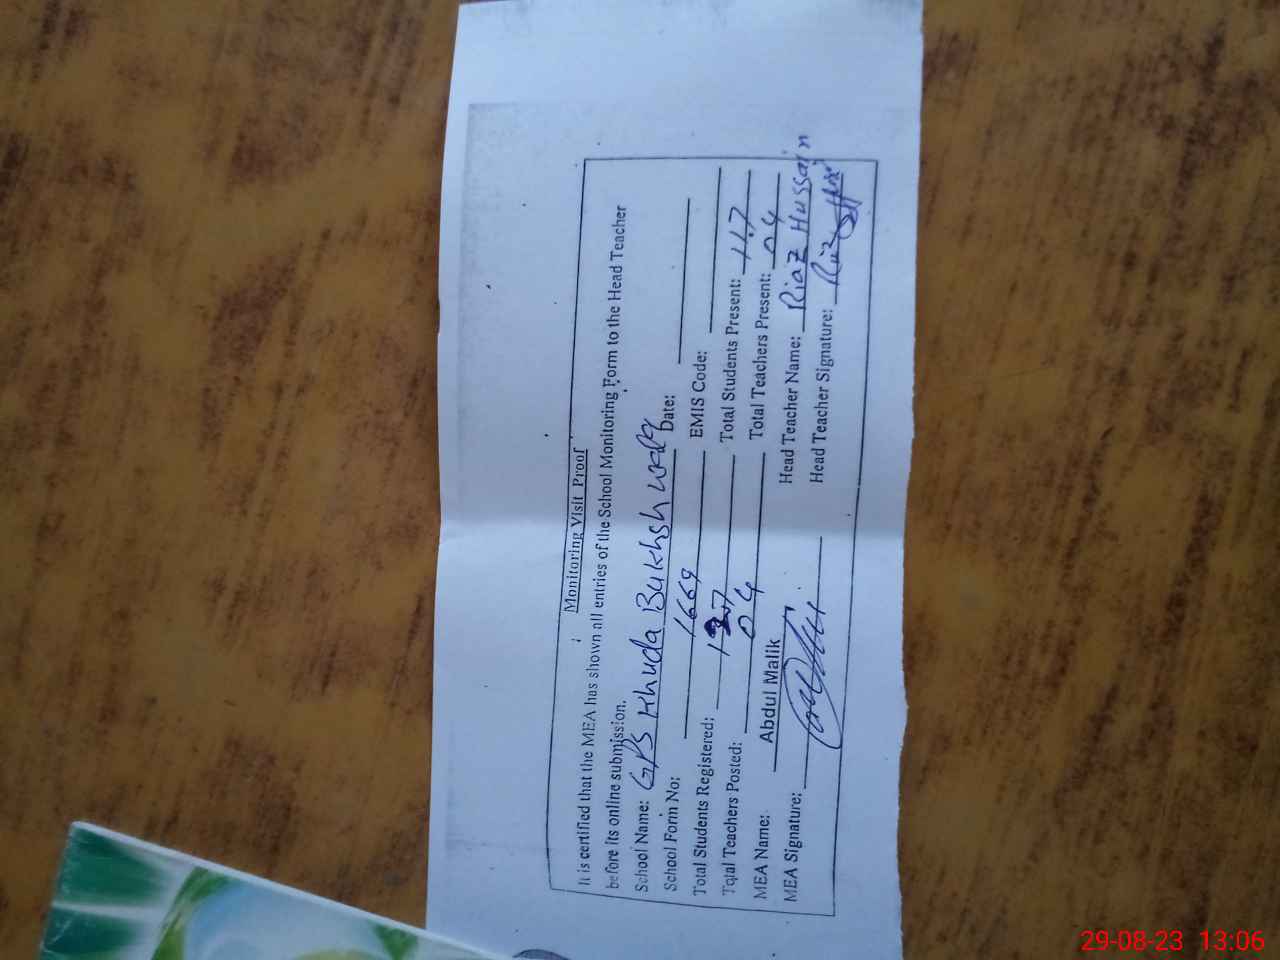 Monitoring Visit Proof
It is certified that the MEA has shown all entries of the School Monitoring Form to the Head Teacher
before its online submission.
School Name: GPS Khuda Bukhsh wala Date:
School Form No: 1669 EMIS Code:
Total Students Registered: 127 Total Students Present: 117
Total Teachers Posted: 04 Total Teachers Present: 04
MEA Name: Abdul Malik Head Teacher Name: Riaz Hussain
MEA Signature: Head Teacher Signature:
29-08-23 13:06